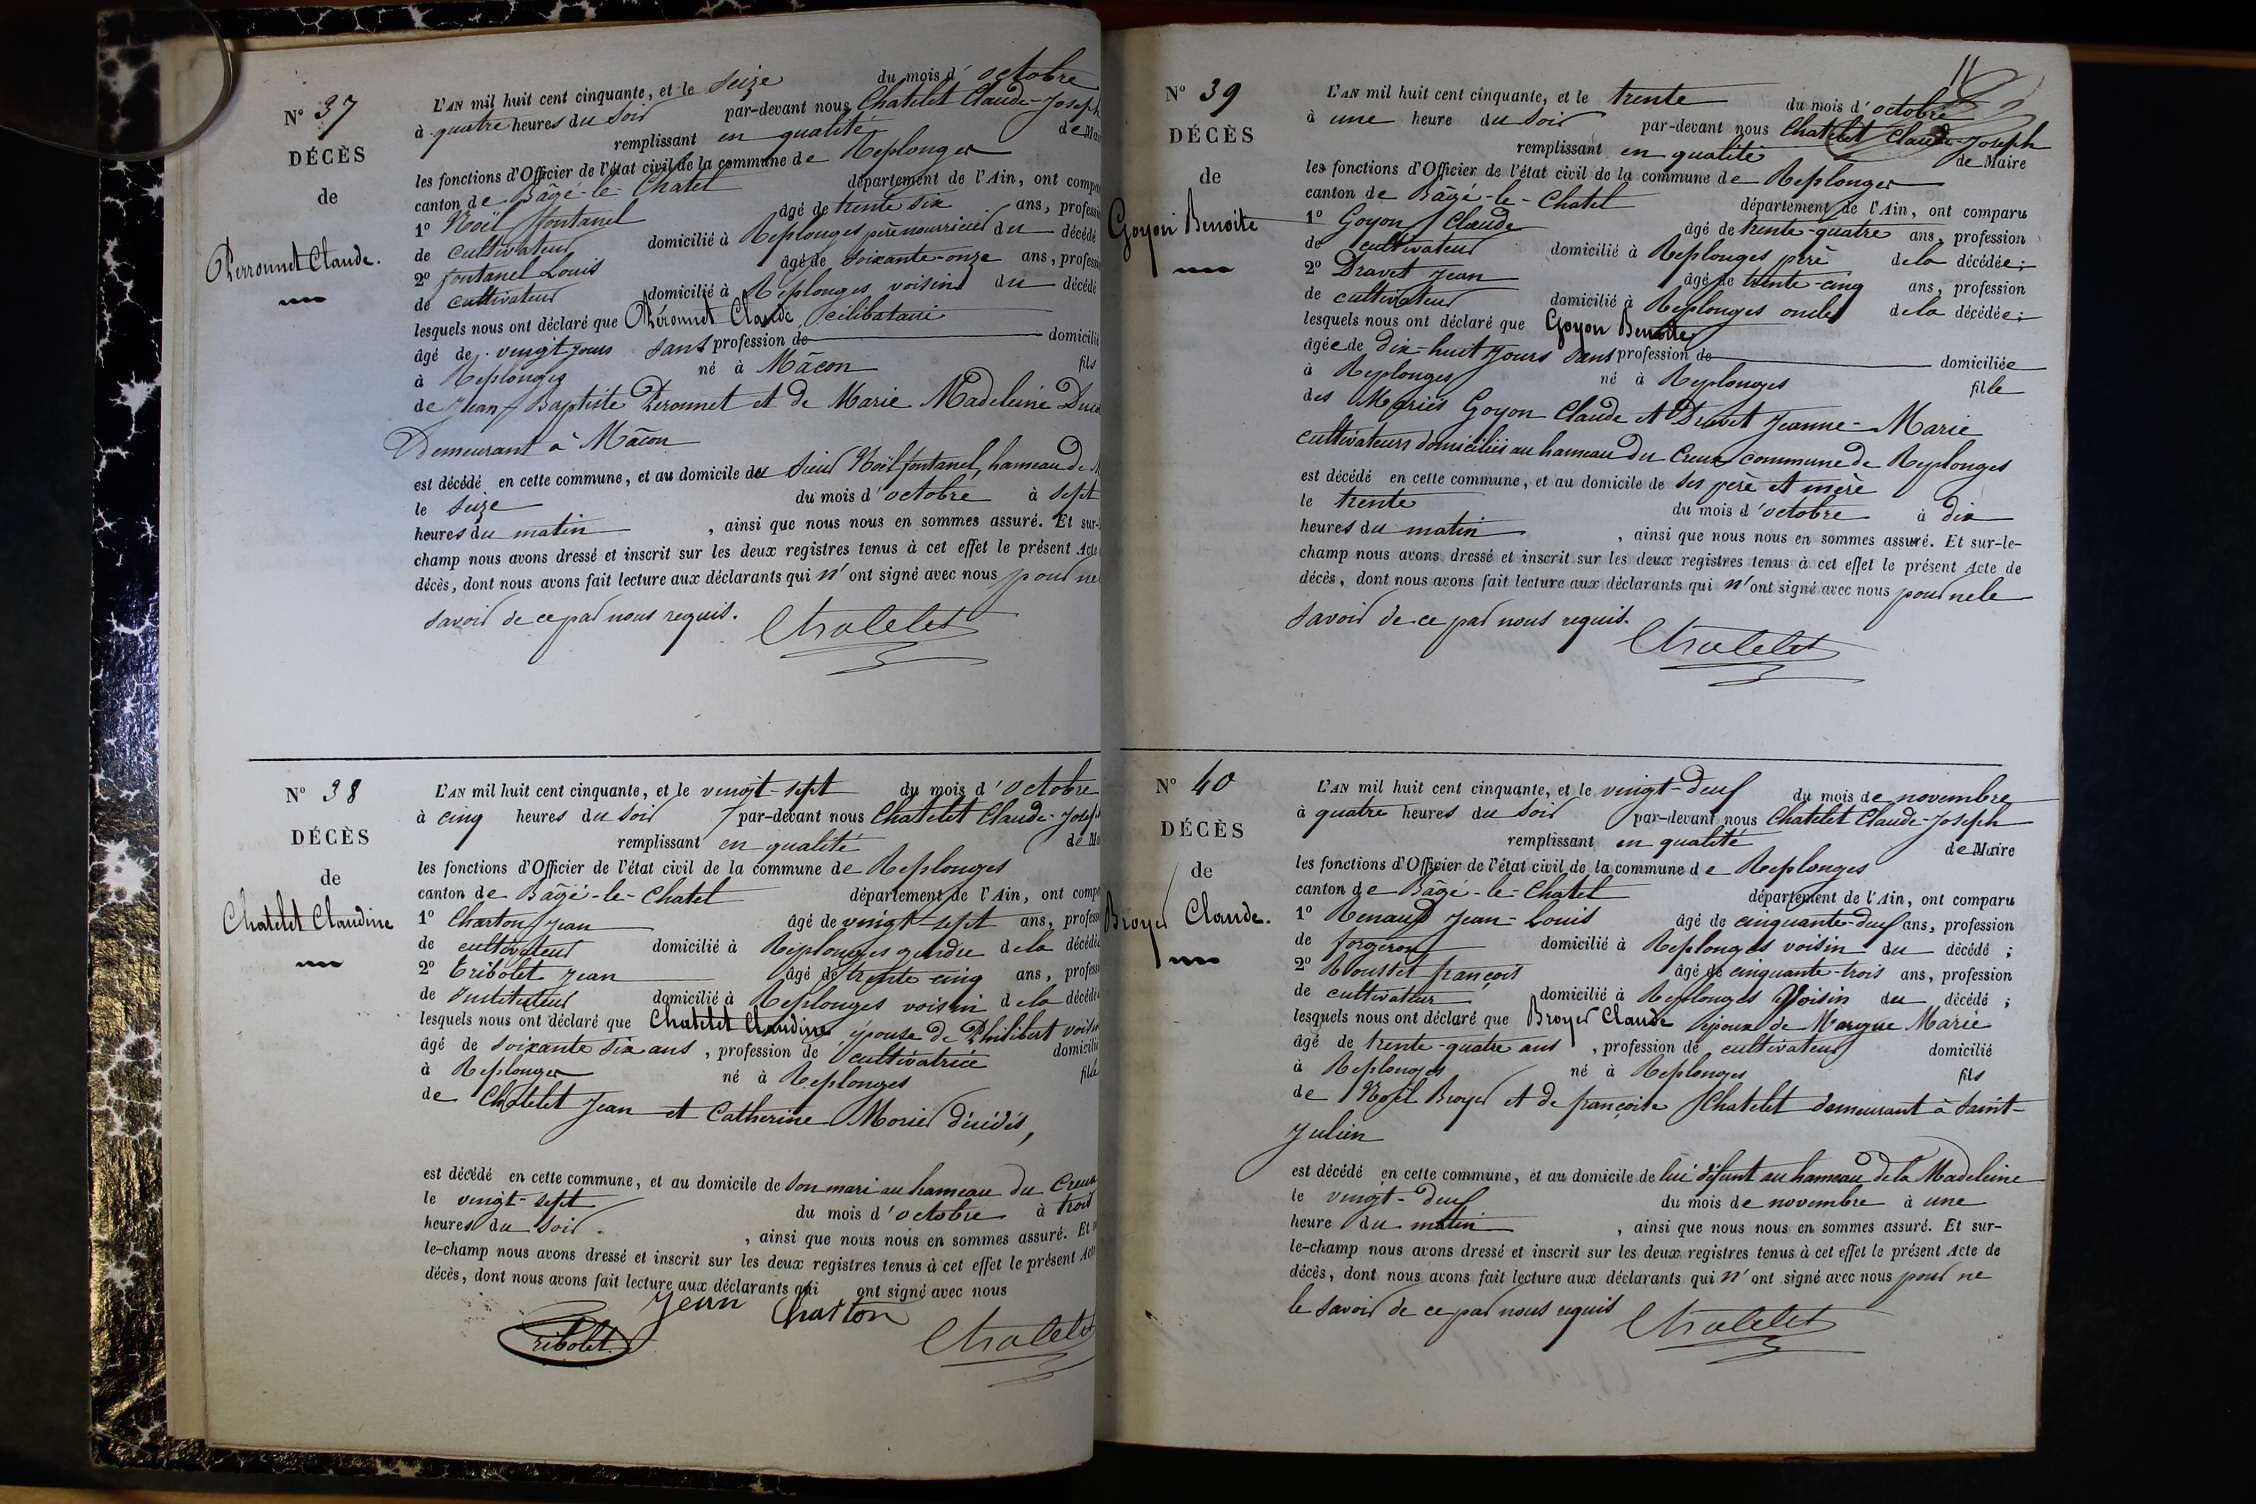 N° 37
DÉCÈS
de
Perronnet Claude.
L'AN mil huit cent cinquante, et le seize du mois d'octobre
à quatre heures du soir par-devant nous Chatelet Claude-Joseph
remplissant en qualité de
les fonctions d'Officier de l'état civil de la commune de Replonges
canton de Bâgé-le-Chatel département de l'Ain, ont
1° Noël fontanel âgé de trente six ans,
de cultivateur domicilié à Replonges père nourricier du décédé
2° fontanel Louis âgé de soixante-onze ans,
de cultivateur domicilié à Replonges voisin du décédé
lesquels nous ont déclaré que Péronnet Claude, célibataire
âgé de vingt jours sans profession de domicilié
à Replonges né à Mâcon fils
de Jean Baptiste Peronnet et de Marie Madeleine
Demeurant à Mâcon
est décédé en cette commune, et au domicile du sieur Noël fontanel, hameau de
le seize du mois d'octobre à sept
heures du matin, ainsi que nous nous en sommes assuré. Et sur-
champ nous avons dressé et inscrit sur les deux registres tenus à cet effet le présent Acte
décès, dont nous avons fait lecture aux déclarants qui n'ont signé avec nous pour ne
savoir de ce par nous requis.
Chatelet
N° 38
DÉCÈS
de
Chatelet Claudine
L'AN mil huit cent cinquante, et le vingt-sept du mois d'octobre
à cinq heures du soir par-devant nous Chatelet Claude-Joseph
remplissant en qualité de
les fonctions d'Officier de l'état civil de la commune de Replonges
canton de Bâgé-le-Chatel département de l'Ain, ont
1° Charton Jean âgé de vingt-sept ans,
de cultivateur domicilié à Replonges gendre de la décédée
2° Tribolet Jean âgé de trente cinq ans,
de Instituteur domicilié à Replonges voisin de la décédée
lesquels nous ont déclaré que Chatelet Claudine épouse de Philibert
âgé de soixante six ans, profession de cultivatrice domicilié
à Replonges né à Replonges fille
de Chatelet Jean et Catherine Morier décédés,
est décédé en cette commune, et au domicile de son mari au hameau du Creux
le vingt-sept du mois d'octobre à trois
heures du soir, ainsi que nous nous en sommes assuré. Et
le-champ nous avons dressé et inscrit sur les deux registres tenus à cet effet le présent Acte
décès, dont nous avons fait lecture aux déclarants qui ont signé avec nous
Jean Charton
Tribolet
Chatelet
11
N° 39
DÉCÈS
de
Goyon Benoite
L'AN mil huit cent cinquante, et le trente du mois d'octobre
à une heure du soir par-devant nous Chatelet Claude Joseph
remplissant en qualité de Maire
les fonctions d'Officier de l'état civil de la commune de Replonges
canton de Bâgé-le-Chatel département de l'Ain, ont comparu
1° Goyon Claude âgé de trente-quatre ans, profession
de cultivateur domicilié à Replonges père de la décédée;
2° Dravet Jean âgé de trente-cinq ans, profession
de cultivateur domicilié à Replonges oncle de la décédée;
lesquels nous ont déclaré que Goyon Benoite
âgée de dix-huit jours sans profession de domiciliée
à Replonges né à Replonges fille
des Mariés Goyon Claude et Dravet Jeanne-Marie
cultivateurs domiciliés au hameau du Creux commune de Replonges
est décédé en cette commune, et au domicile de ses père et mère
le trente du mois d'octobre à dix
heures du matin, ainsi que nous nous en sommes assuré. Et sur-le-
champ nous avons dressé et inscrit sur les deux registres tenus à cet effet le présent Acte de
décès, dont nous avons fait lecture aux déclarants qui n'ont signé avec nous pour ne le
savoir de ce par nous requis.
Chatelet
N° 40
DÉCÈS
de
Broyer Claude.
L'AN mil huit cent cinquante, et le vingt-deux du mois de novembre
à quatre heures du soir par-devant nous Chatelet Claude-Joseph
remplissant en qualité de Maire
les fonctions d'Officier de l'état civil de la commune de Replonges
canton de Bâgé-le-Chatel département de l'Ain, ont comparu
1° Renaud Jean-Louis âgé de cinquante-deux ans, profession
de forgeron domicilié à Replonges voisin du décédé;
2° Rousset françois âgé de cinquante-trois ans, profession
de cultivateur domicilié à Replonges Voisin du décédé;
lesquels nous ont déclaré que Broyer Claude époux de Marie
âgé de trente-quatre ans, profession de cultivateur domicilié
à Replonges né à Replonges fils
de Noël Broyer et de françoise Chatelet demeurant à Saint-
Julien
est décédé en cette commune, et au domicile de lui défunt au hameau de la Madeleine
le vingt-deux du mois de novembre à une
heure du matin, ainsi que nous nous en sommes assuré. Et sur-
le-champ nous avons dressé et inscrit sur les deux registres tenus à cet effet le présent Acte de
décès, dont nous avons fait lecture aux déclarants qui n'ont signé avec nous pour ne
le savoir de ce par nous requis
Chatelet